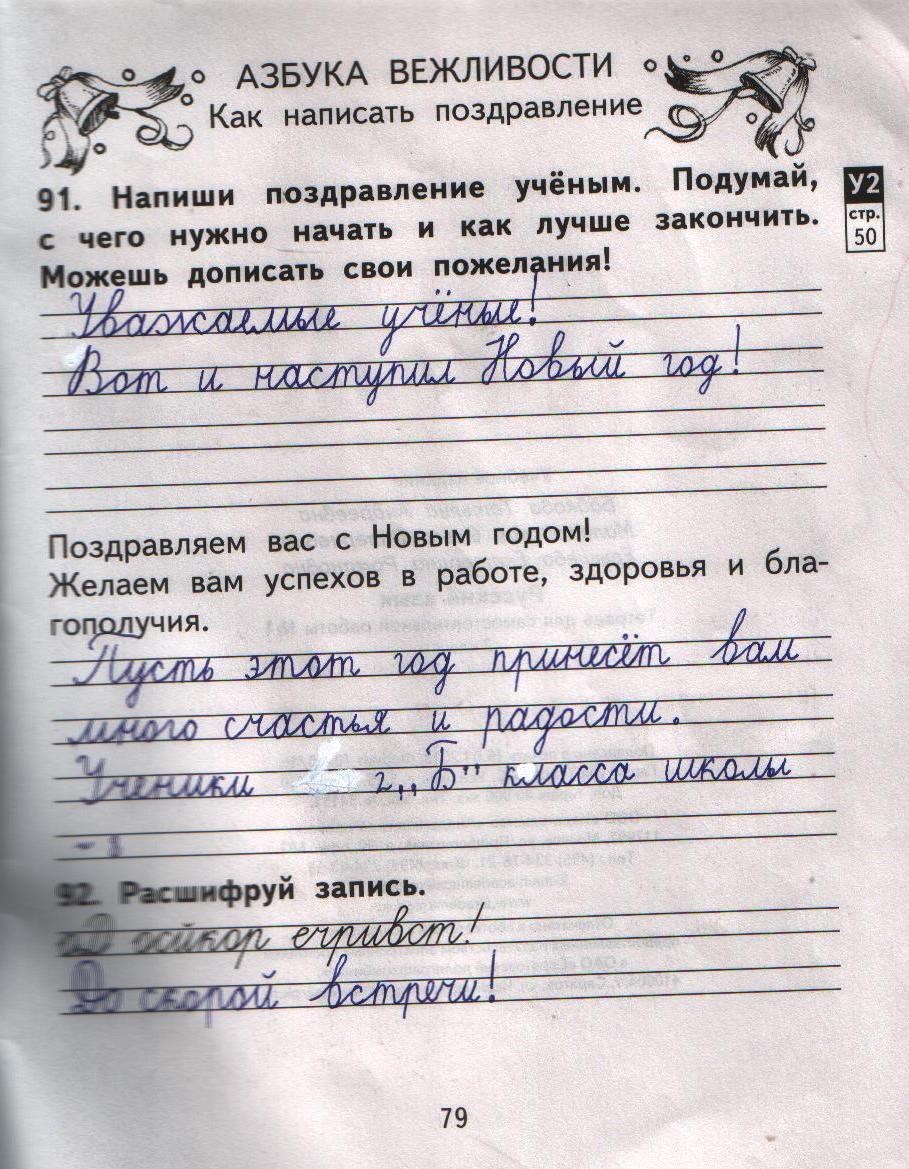 АЗБУКА ВЕЖЛИВОСТИ
Как написать поздравление
91. Напиши поздравление учёным. Подумай,
с чего нужно начать и как лучше закончить.
Можешь дописать свои пожелания!
У2
стр.
50
Уважаемые учёные!
Вот и наступил Новый год!
Поздравляем вас с Новым годом!
Желаем вам успехов в работе, здоровья и бла-
гополучия.
Пусть этот год принесёт вам
много счастья и радости.
Ученики 2 „Б" класса школы
92. Расшифруй запись.
оД осйкор ечривст!
До скорой встречи!
79